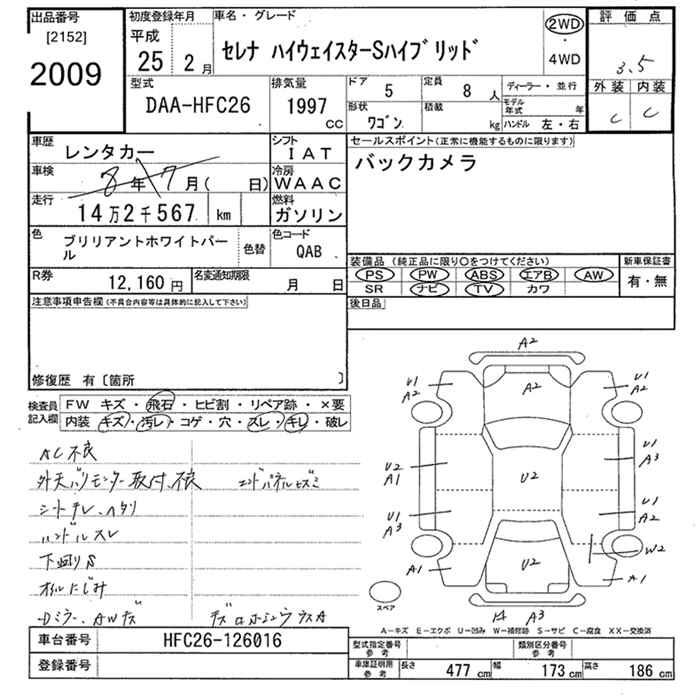 出品番号 初度登録年月 車名・グレード 2WD 評価点
[2152] 平成
2009 25 2月 セレナ ハイウェイスターSハイブリッド ・ 4WD 3.5
型式 排気量 ドア 5 定員 8人 ディーラー・並行 外装 内装
DAA-HFC26 1997 cc 形状 ワゴン 積載 kg モデル年式 年 C C
ハンドル 左・右
車歴 レンタカー シフト IAT セールスポイント(正常に機能するものに限ります)
車検 8年7月( 日) 冷房 WAAC バックカメラ
走行 14万2千567 km 燃料 ガソリン
色 ブリリアントホワイトパール 色替 色コード QAB
装備品 (純正品に限り○をつけてください) 新車保証書
PS PW ABS エアB AW 有・無
SR ナビ TV カワ
R券 12,160円 名変通知期限 月 日
後日品
注意事項申告欄(不具合内容等は具体的に記入して下さい)
修復歴 有[箇所 ]
検査員記入欄 FW キズ・飛石・ヒビ割・リペア跡・×要
内装 キズ・汚レ・コゲ・穴・スレ・キレ・破レ
AC不良
外天バリモニター取付不良 エンドパネルキズミ
シートキレ、ヘタリ
ハンドルスレ
下廻りS
オイルにじみ
A2
U1 A2 A2 U1 A2
U2 A1 U2 U1 A3
U1 A3 U1 A2
A1 U2 W2 A1
スペア A3
A−キズ E−エクボ U−凹み W−補修跡 S−サビ C−腐食 XX−交換済
車台番号 HFC26-126016
登録番号
型式指定番号 参考 類別区分番号 参考
車庫証明用 参考 長さ 477cm 幅 173cm 高さ 186cm